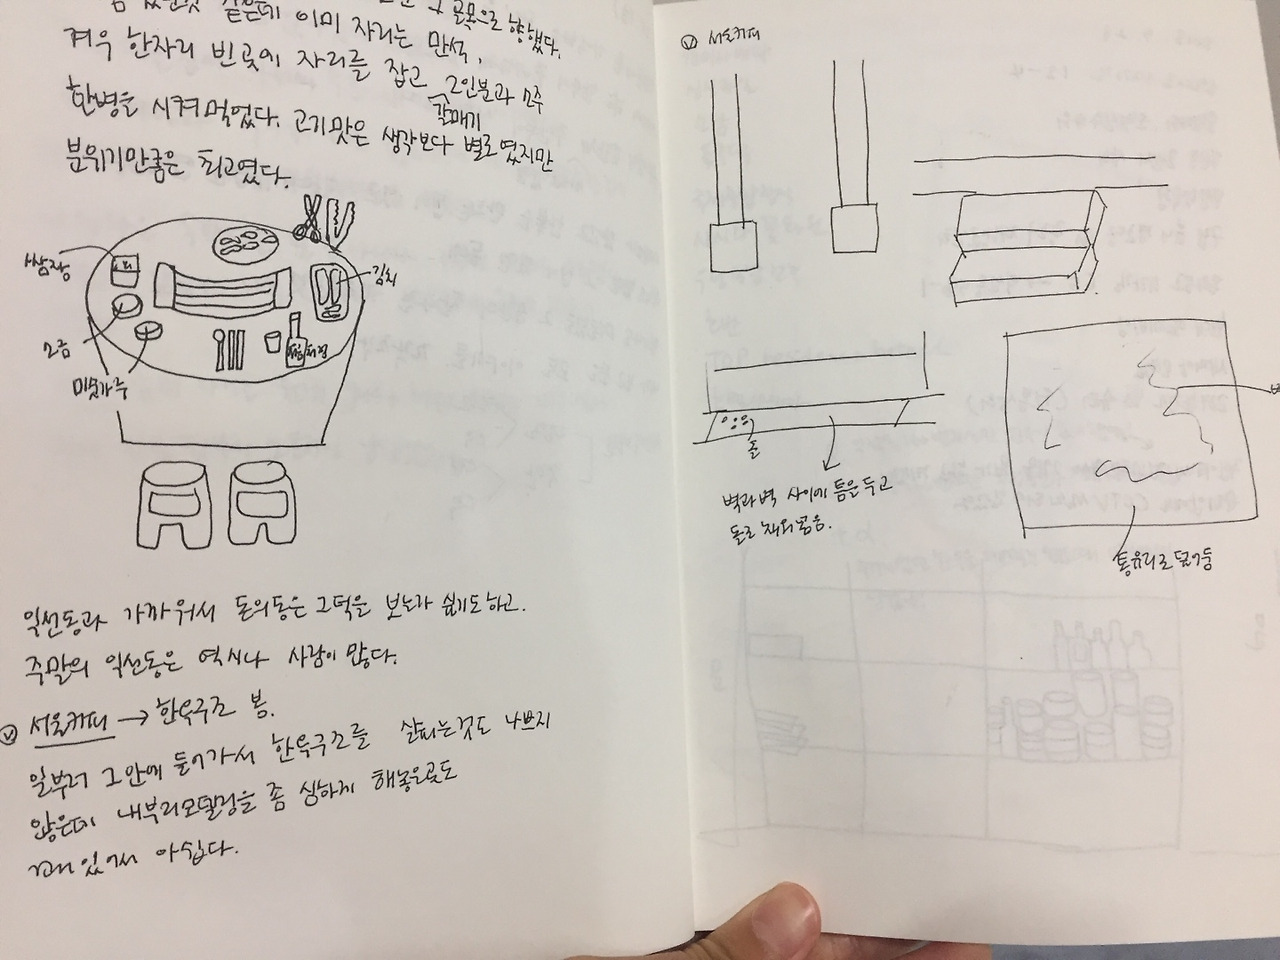 이미 자리는 만석,
골목으로 향했다.
겨우 한자리 빈곳에 자리를 잡고 2인분과 소주
갈매기
한병을 시켜먹었다. 고기맛은 생각보다 별로였지만
분위기만큼은 최고였다.
쌈장
소금
김치
익선동과 가까워서 돈의동은 그덕을 보는가 싶기도하고.
주말의 익선동은 역시나 사람이 많다.
서울커피 → 한옥구조 봄.
일부러 그안에 들어가서 한옥구조를 살피는것도 나쁘지
않은데 내부리모델링을 좀 심하게 해놓은곳도
꽤 있어서 아쉽다.
서울커피
돌
벽과벽 사이에 틈을 두고
돌로 채워넣음.
통유리로 덮어둠